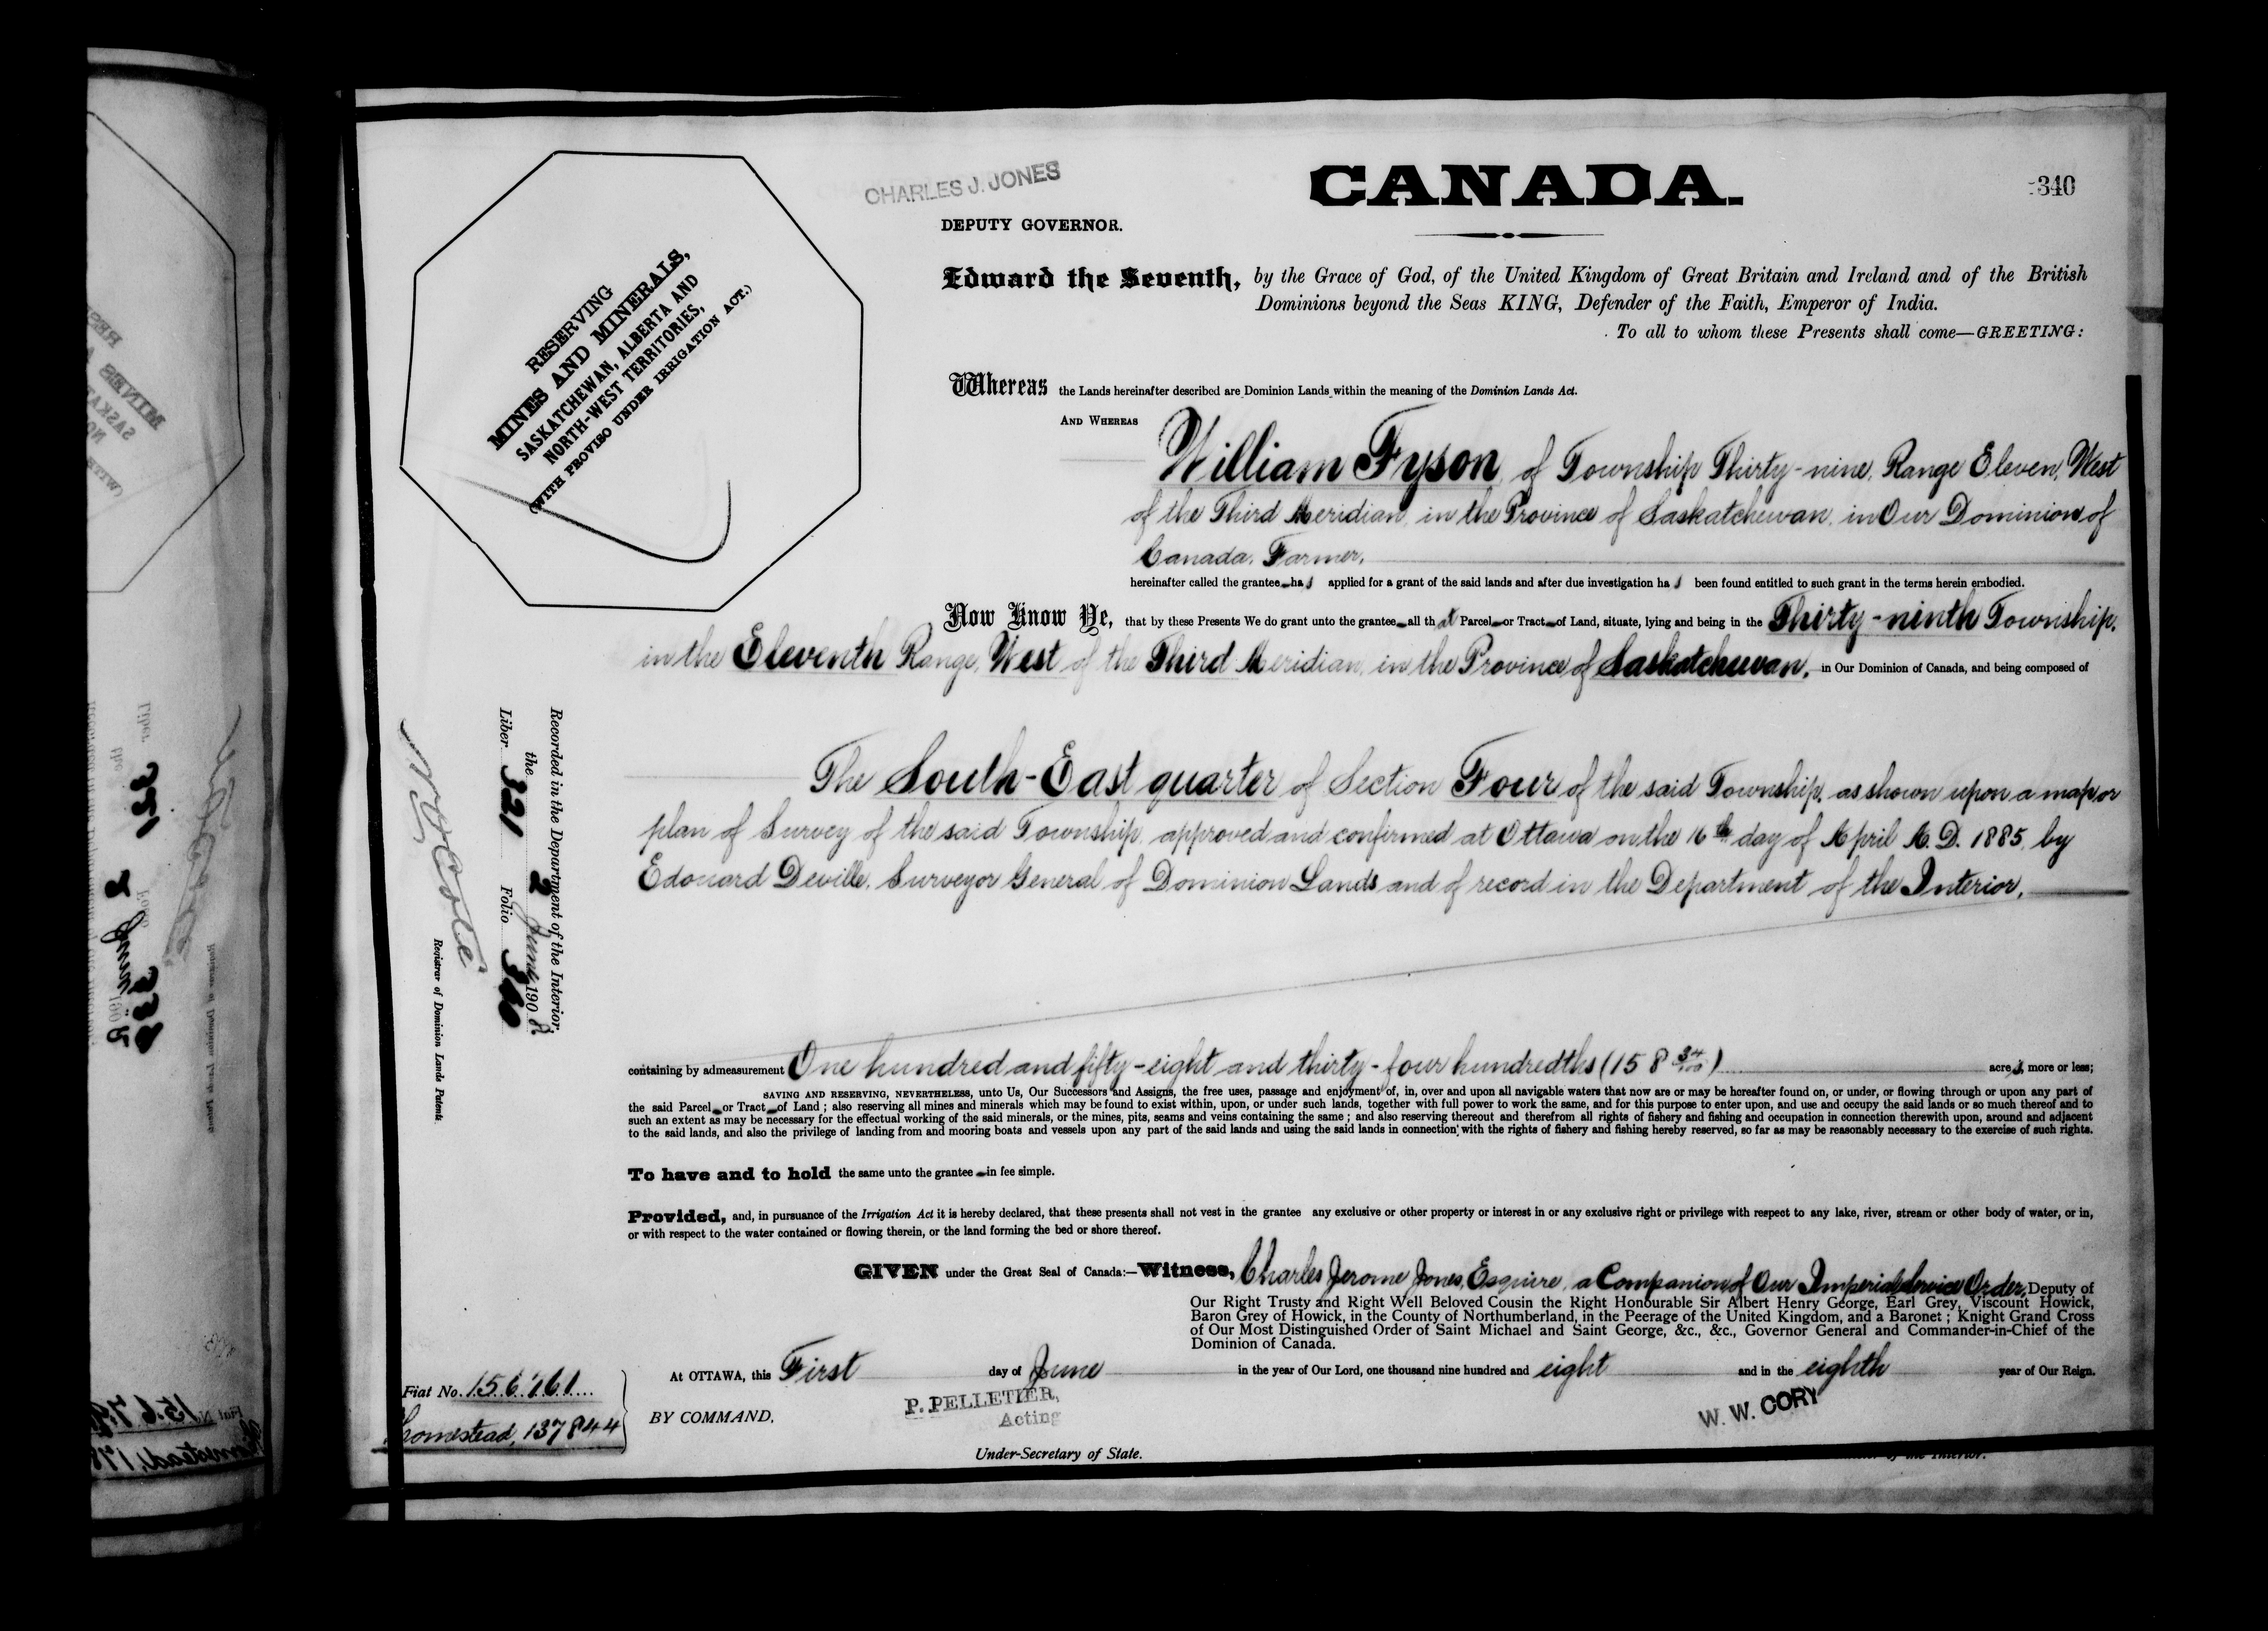 CHARLES J. JONES
DEPUTY GOVERNOR.
CANADA.
340
RESERVING
MINES AND MINERALS,
SASKATCHEWAN, ALBERTA AND
NORTH-WEST TERRITORIES,
(WITH PROVISO UNDER IRRIGATION ACT.)
Edward the Seventh, by the Grace of God, of the United Kingdom of Great Britain and Ireland and of the British
Dominions beyond the Seas KING, Defender of the Faith, Emperor of India.
To all to whom these Presents shall come—GREETING:
Whereas the Lands hereinafter described are Dominion Lands within the meaning of the Dominion Lands Act.
AND WHEREAS
William Fyson, of Township Thirty-nine, Range Eleven, West
of the Third Meridian, in the Province of Saskatchewan, in Our Dominion of
Canada, Farmer,
hereinafter called the grantee has applied for a grant of the said lands and after due investigation has been found entitled to such grant in the terms herein embodied.
Now Know Ye, that by these Presents We do grant unto the grantee all that Parcel or Tract of Land, situate, lying and being in the Thirty-ninth Township,
in the Eleventh Range, West of the Third Meridian, in the Province of Saskatchewan, in Our Dominion of Canada, and being composed of
The South-East quarter of Section Four of the said Township, as shown upon a map or
plan of Survey of the said Township, approved and confirmed at Ottawa on the 16th day of April A.D. 1885, by
Edouard Deville, Surveyor General of Dominion Lands and of record in the Department of the Interior,
Recorded in the Department of the Interior,
the 2 June 1908.
Liber 321 Folio 340
N.O. Coté
Registrar of Dominion Lands Patents
containing by admeasurement One hundred and fifty-eight and thirty-four hundredths (158 34/100) acres, more or less;
SAVING AND RESERVING, NEVERTHELESS, unto Us, Our Successors and Assigns, the free uses, passage and enjoyment of, in, over and upon all navigable waters that now are or may be hereafter found on, or under, or flowing through or upon any part of
the said Parcel or Tract of Land ; also reserving all mines and minerals which may be found to exist within, upon, or under such lands, together with full power to work the same, and for this purpose to enter upon, and use and occupy the said lands or so much thereof and to
such an extent as may be necessary for the effectual working of the said minerals, or the mines, pits, seams and veins containing the same ; and also reserving thereout and therefrom all rights of fishery and fishing and occupation in connection therewith upon, around and adjacent
to the said lands, and also the privilege of landing from and mooring boats and vessels upon any part of the said lands and using the said lands in connection with the rights of fishery and fishing hereby reserved, so far as may be reasonably necessary to the exercise of such rights.
To have and to hold the same unto the grantee in fee simple.
Provided, and, in pursuance of the Irrigation Act it is hereby declared, that these presents shall not vest in the grantee any exclusive or other property or interest in or any exclusive right or privilege with respect to any lake, river, stream or other body of water, or in,
or with respect to the water contained or flowing therein, or the land forming the bed or shore thereof.
GIVEN under the Great Seal of Canada:—Witness, Charles Jerome Jones, Esquire, a Companion of Our Imperial Service Order, Deputy of
Our Right Trusty and Right Well Beloved Cousin the Right Honourable Sir Albert Henry George, Earl Grey, Viscount Howick,
Baron Grey of Howick, in the County of Northumberland, in the Peerage of the United Kingdom, and a Baronet ; Knight Grand Cross
of Our Most Distinguished Order of Saint Michael and Saint George, &c., &c., Governor General and Commander-in-Chief of the
Dominion of Canada.
At OTTAWA, this First day of June in the year of Our Lord, one thousand nine hundred and eight and in the eighth year of Our Reign.
Fiat No. 156761
Homestead, 137844
BY COMMAND,
P. PELLETIER,
Acting
Under-Secretary of State.
W. W. CORY
of the Interior.